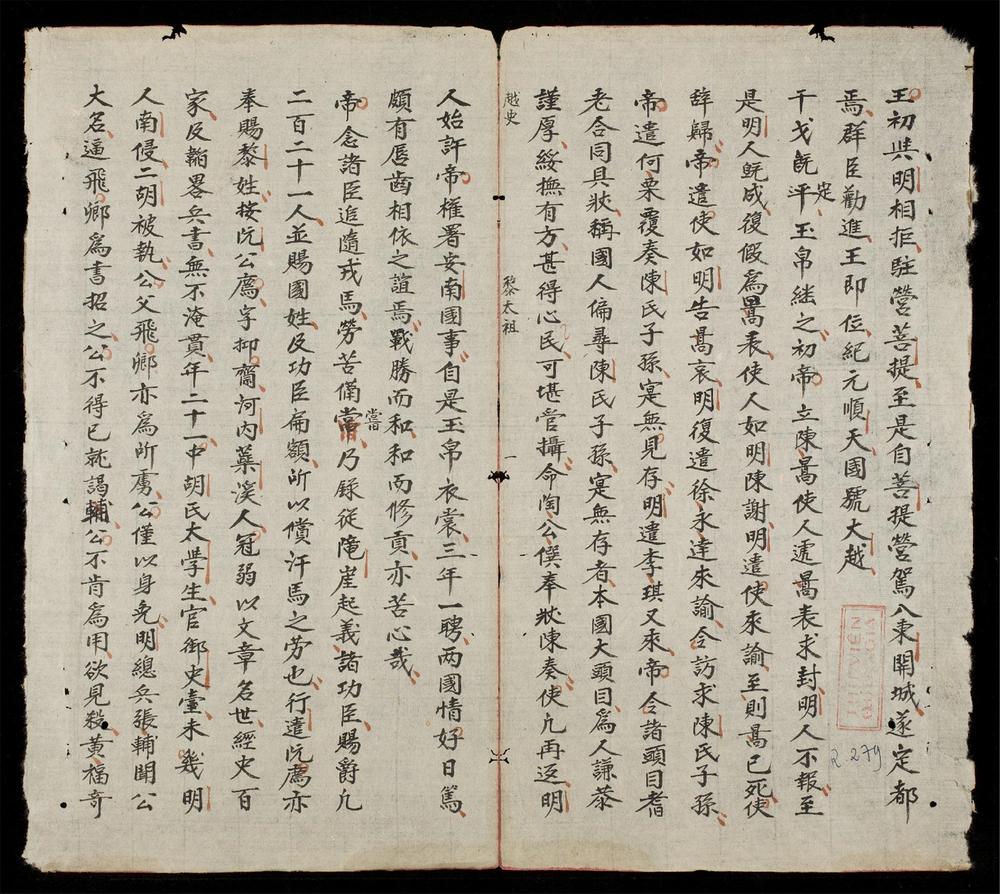 王初與明相拒駐營菩提至是自菩提營駕入東關城遂定都
焉群臣勸進王即位紀元順天國號大越
干戈既平定玉帛継之初帝立陳暠使人逓暠表求封明人不報至
是明人既成復假爲暠表使人如明陳謝明遣使來諭至則暠已死使
辞歸帝遣使如明告暠哀明復遣徐永達來諭令訪求陳氏子孫
帝遣何栗覆奏陳氏子孫寔無見存明遣李琪又來帝令諸頭目耆
老合同具狀稱國人偏尋陳氏子孫寔無存者本國大頭目爲人謙恭
謹厚綏撫有方甚得心民可堪管攝命陶公僎奉狀陳奏使凢再返明
越史 黎太祖 一
人始許帝權署安南國事自是玉帛衣裳三年一聘两國情好日篤
頗有唇齒相依之誼焉戰勝而和和而修貢亦苦心哉
帝念諸臣追隨戎馬勞苦偹當嘗乃録從隆崖起義諸功臣賜爵凢
二百二十一人並賜國姓及功臣扁額所以償汗馬之劳也行遣阮廌亦
奉賜黎姓按阮公廌字抑齋河内蘂溪人冠弱以文章名世經史百
家及韜畧兵書無不淹貫年二十一中胡氏太學生官御史臺未幾明
人南侵二胡被執公父飛卿亦爲所虜公僅以身免明總兵張輔聞公
大名逼飛卿爲書招之公不得已就謁輔公不肯爲用欲見殺黄福奇
THƯ VIỆN
QUỐC GIA
R.279